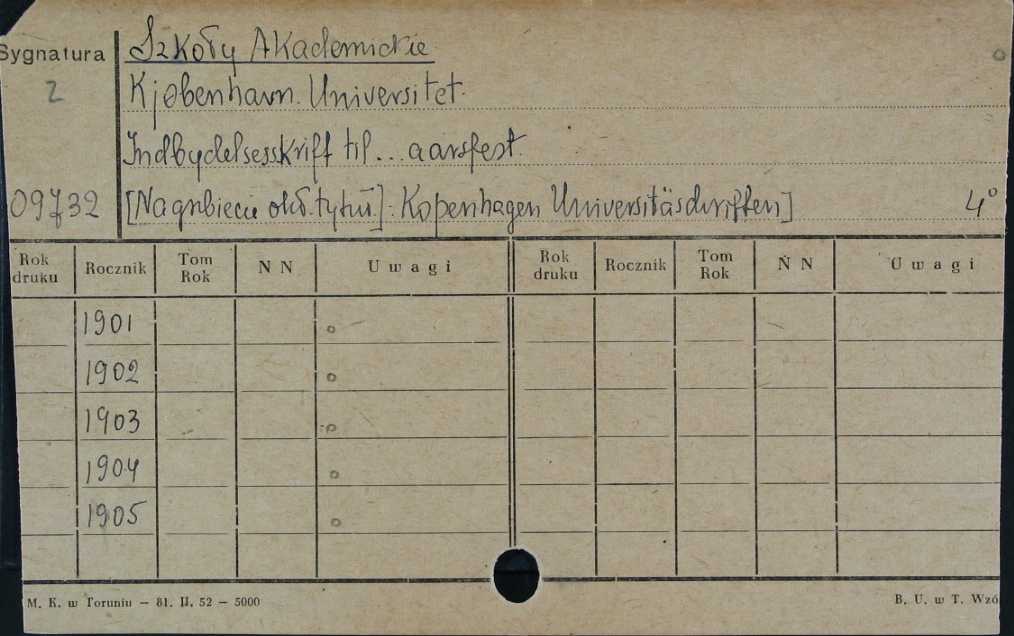 Sygnatura
Szkoły Akademickie
2
Kjøbenhavn. Universitet.
Indbydelsesskrift til... aarsfest.
09732
[Na grzbiecie okł. tytuł]: Kopenhagen Universitäschriften]
4°
Rok druku Rocznik Tom Rok N N Uwagi Rok druku Rocznik Tom Rok N N Uwagi
1901 o
1902 o
1903 o
1904 o
1905 o
M. K. w Toruniu — 81. II. 52 — 5000
B. U. w T. Wzó